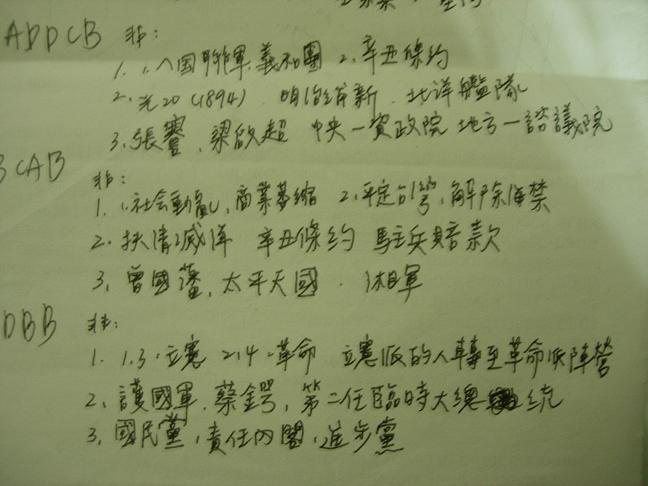 ADDCB 非:
1. 1.八国聯軍.義和團 2.辛丑條约
2. 光20(1894).明治維新.北洋艦隊
3. 張謇、梁啟超 中央一資政院 地方一諮議院
BCAB 非:
1. 1.社會動亂,商業萎縮 2.平定台灣,解除海禁
2. 扶清滅洋 辛丑條约 駐兵賠款
3. 曾國藩,太平天國.湘軍
DBB 非:
1. 1.3.立憲 2.4.革命 立憲派的人轉至革命派陣營
2. 護國軍.蔡鍔,第二任臨時大總統
3. 國民黨,責任內閣,進步黨